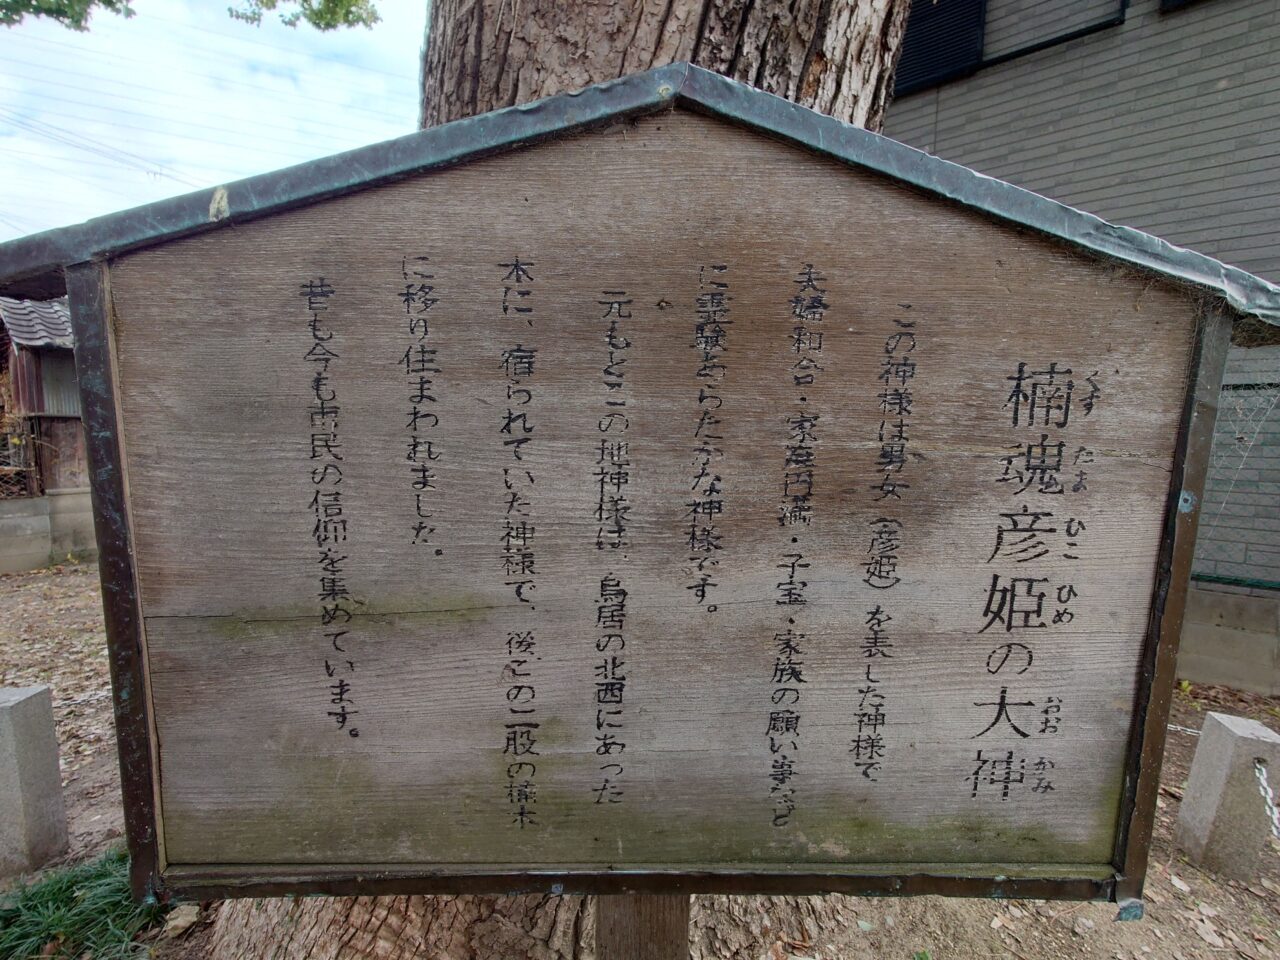 楠魂彦姫の大神
くすたまひこひめ おおかみ
この神様は男女（彦姫）を表した神様で
夫婦和合・家庭円満・子宝・家族の願い事など
に霊験あらたかな神様です。
元もとこの地神様は、鳥居の北西にあった
木に、宿られていた神様で、後この二股の楠木
に移り住まわれました。
昔も今も市民の信仰を集めています。